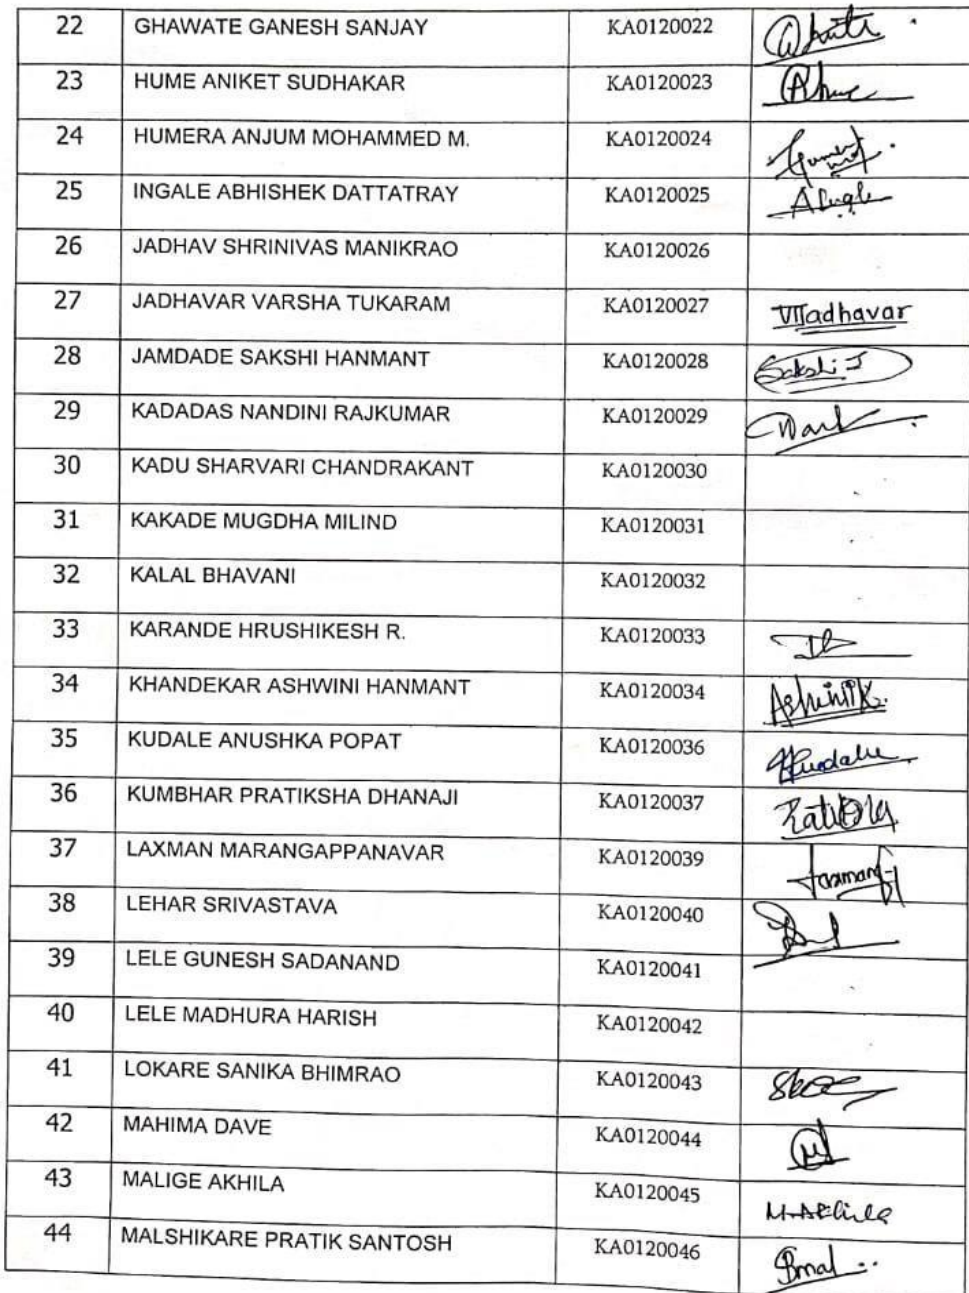 22 GHAWATE GANESH SANJAY KA0120022
23 HUME ANIKET SUDHAKAR KA0120023
24 HUMERA ANJUM MOHAMMED M. KA0120024
25 INGALE ABHISHEK DATTATRAY KA0120025
26 JADHAV SHRINIVAS MANIKRAO KA0120026
27 JADHAVAR VARSHA TUKARAM KA0120027 VTJadhavar
28 JAMDADE SAKSHI HANMANT KA0120028 Sakshi J
29 KADADAS NANDINI RAJKUMAR KA0120029
30 KADU SHARVARI CHANDRAKANT KA0120030
31 KAKADE MUGDHA MILIND KA0120031
32 KALAL BHAVANI KA0120032
33 KARANDE HRUSHIKESH R. KA0120033
34 KHANDEKAR ASHWINI HANMANT KA0120034 AshwiniK.
35 KUDALE ANUSHKA POPAT KA0120036
36 KUMBHAR PRATIKSHA DHANAJI KA0120037
37 LAXMAN MARANGAPPANAVAR KA0120039
38 LEHAR SRIVASTAVA KA0120040
39 LELE GUNESH SADANAND KA0120041
40 LELE MADHURA HARISH KA0120042
41 LOKARE SANIKA BHIMRAO KA0120043
42 MAHIMA DAVE KA0120044
43 MALIGE AKHILA KA0120045 M.Akhila
44 MALSHIKARE PRATIK SANTOSH KA0120046